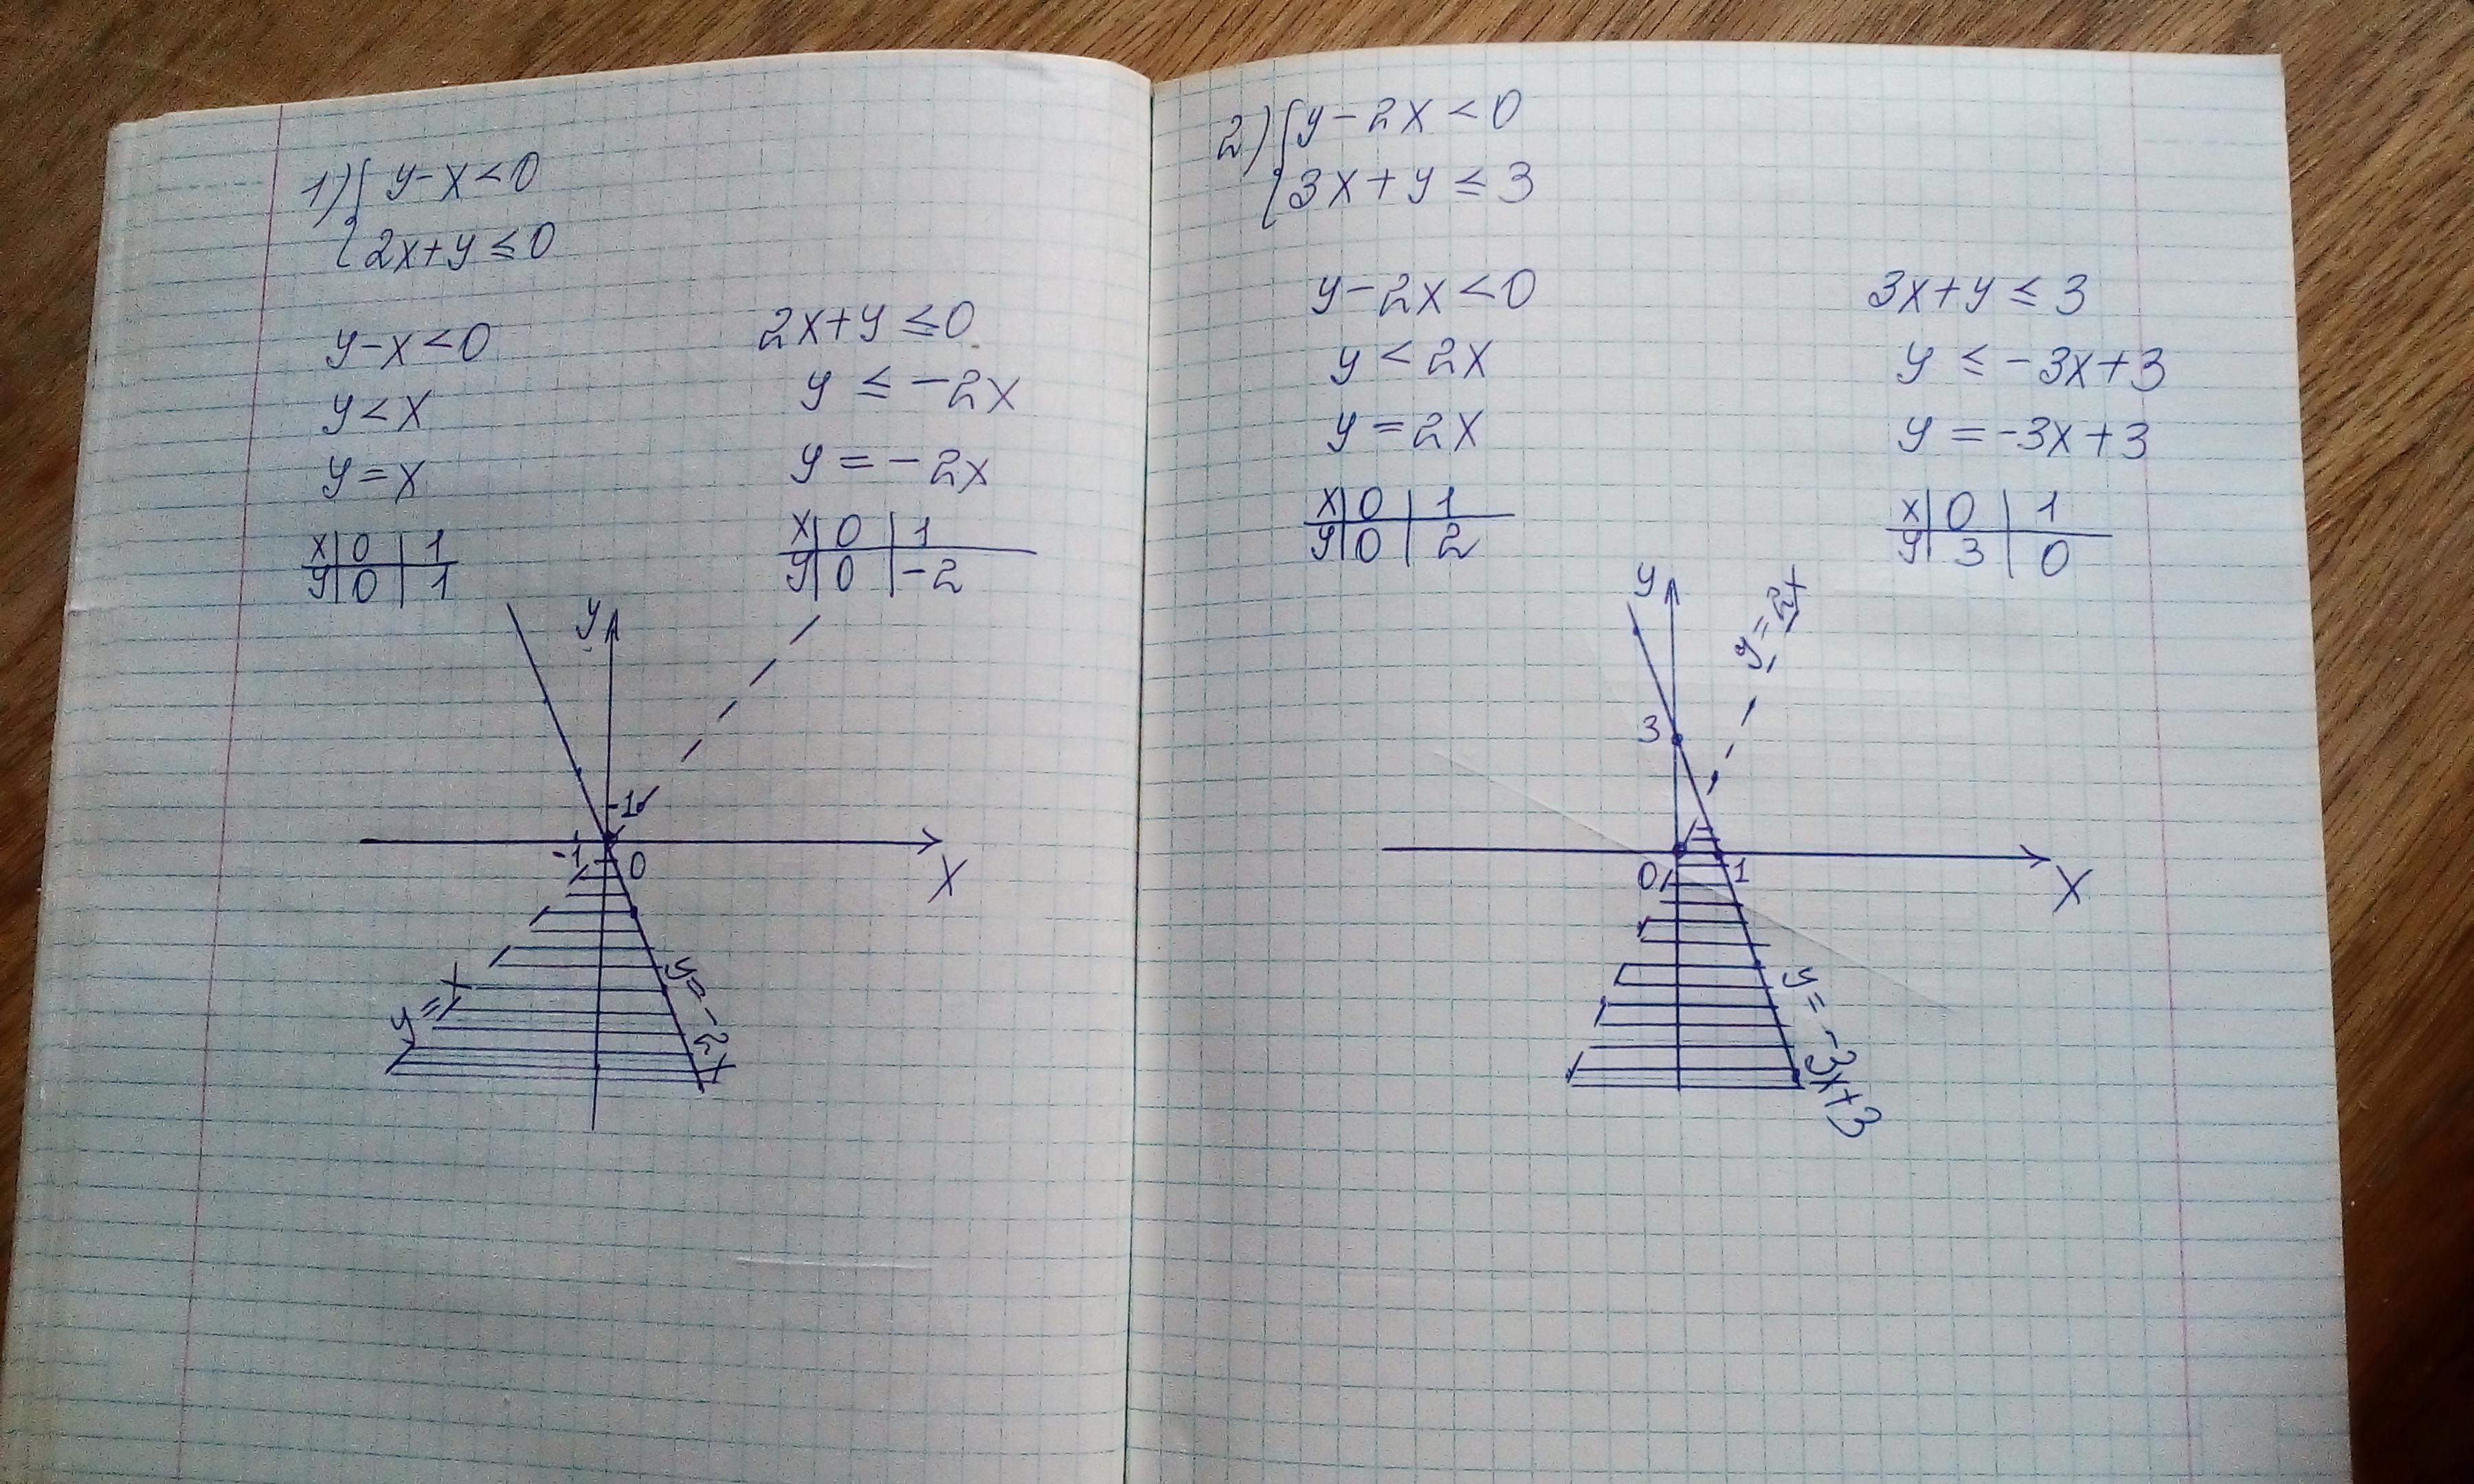 1) { y-x<0
2x+y≤0
y-x<0
y<x
y=x
x|0|1
y|0|1
2x+y≤0
y≤-2x
y=-2x
x|0|1
y|0|-2
y
-1
-1
0
x
y=x
y=-2x
2) { y-2x<0
3x+y≤3
y-2x<0
y<2x
y=2x
x|0|1
y|0|2
3x+y≤3
y≤-3x+3
y=-3x+3
x|0|1
y|3|0
y
y=2x
3
0
1
x
y=-3x+3